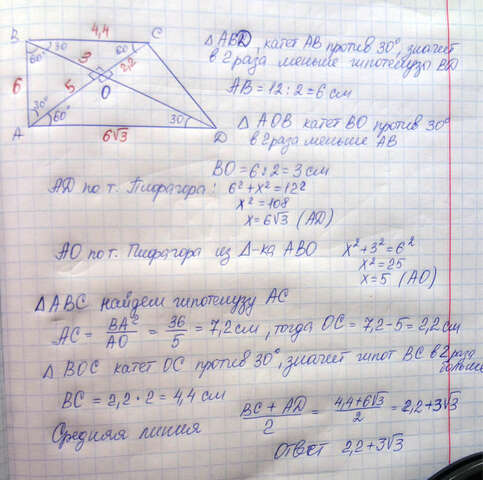 B 4,4 C
60° 30 60
3
6 5 2,2
O
30° 60° 30
A 6√3 D
Δ ABD, катет AB против 30°, значит
в 2 раза меньше гипотенузы BD
AB = 12 : 2 = 6 см
Δ AOB катет BO против 30°
в 2 раза меньше AB
BO = 6 : 2 = 3 см
AD по т. Пифагора: 6² + x² = 12²
x² = 108
x = 6√3 (AD)
AO по т. Пифагора из Δ-ка ABO x² + 3² = 6²
x² = 25
x = 5 (AO)
Δ ABC найдем гипотенузу AC
AC = BA²/AO = 36/5 = 7,2 см, тогда OC = 7,2 - 5 = 2,2 см
Δ BOC катет OC против 30°, значит гипот BC в 2 раза
больше
BC = 2,2 · 2 = 4,4 см
BC + AD/2 = 4,4 + 6√3/2 = 2,2 + 3√3
Средняя линия
Ответ 2,2 + 3√3